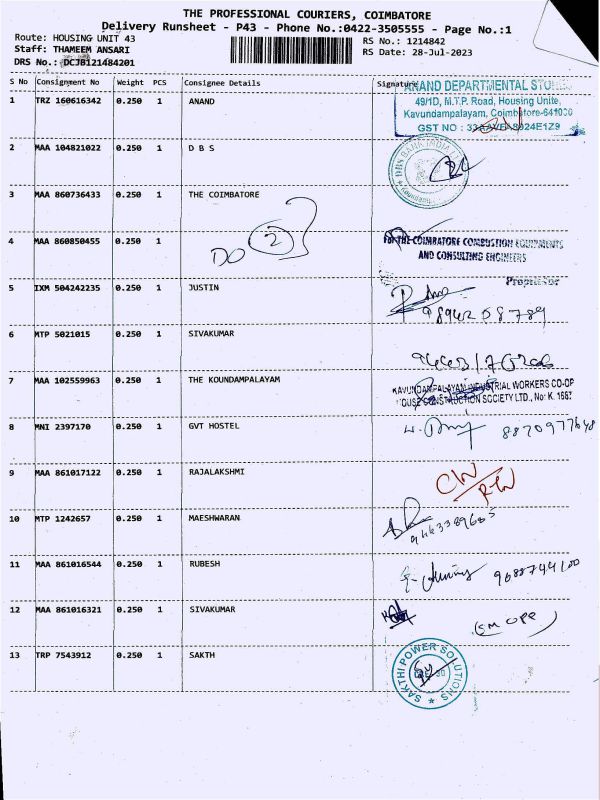 THE PROFESSIONAL COURIERS, COIMBATORE
Delivery Runsheet - P43 - Phone No.:0422-3505555 - Page No.:1
Route: HOUSING UNIT 43 RS No.: 1214842
Staff: THAMEEM ANSARI RS Date: 28-Jul-2023
DRS No.: DCJB121484201
S No Consignment No Weight PCS Consignee Details Signature
1 TRZ 160616342 0.250 1 ANAND
ANAND DEPARTMENTAL
49/1D, M.T.P. Road, Housing Unite,
Kavundampalayam, Coimbatore-641030
GST NO :
2 MAA 104821022 0.250 1 D B S
DBS BANK INDIA
3 MAA 860736433 0.250 1 THE COIMBATORE
DO 2
4 MAA 860850455 0.250 1
For THE COIMBATORE COMBUSTION EQUIPMENTS
AND CONSULTING ENGINEERS
Proprietor
5 IXM 504242235 0.250 1 JUSTIN
8942 08789
6 MTP 5021015 0.250 1 SIVAKUMAR
7 MAA 102559963 0.250 1 THE KOUNDAMPALAYAM
KAVUNDAMPALAYAM INDUSTRIAL WORKERS CO-OP
HOUSE CONSTRUCTION SOCIETY LTD., No: K. 1687
8 MNI 2397170 0.250 1 GVT HOSTEL
8870977648
9 MAA 861017122 0.250 1 RAJALAKSHMI
10 MTP 1242657 0.250 1 MAESHWARAN
9463389685
11 MAA 861016544 0.250 1 RUBESH
9688744100
12 MAA 861016321 0.250 1 SIVAKUMAR
(SM OPP)
13 TRP 7543912 0.250 1 SAKTH
SAKTHI POWER SOLUTIONS